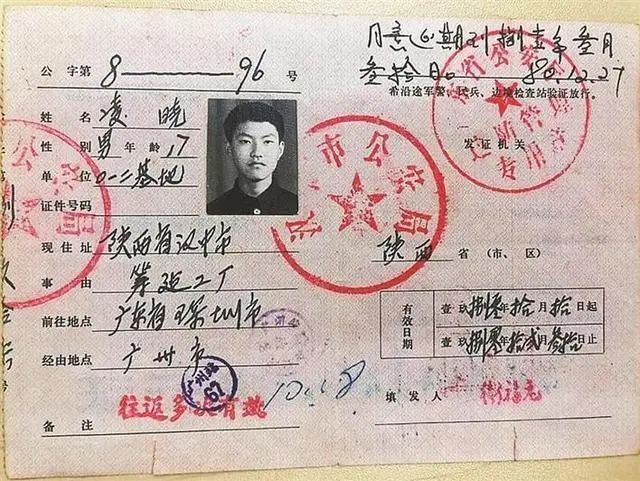 公字第 8 — 96 号
姓名 凌晓
性别 男 年龄 17
单位 0一二基地
证件号码
现住址 陕西省汉中市
事由 筹建工厂
前往地点 广东省深圳市
经由地点 广州市
往返多次有效
备注
广州站
67
10.18
同意延期到捌壹年叁月
叁拾日。 80.12.27
希沿途军警、民兵、边境检查站验证放行。
省公安
边防管理
专用章
发证机关
市公安局
陕西 省(市、区)
有效日期
壹玖捌零年拾月拾日起
壹玖捌零年拾贰月叁拾日止
填发人